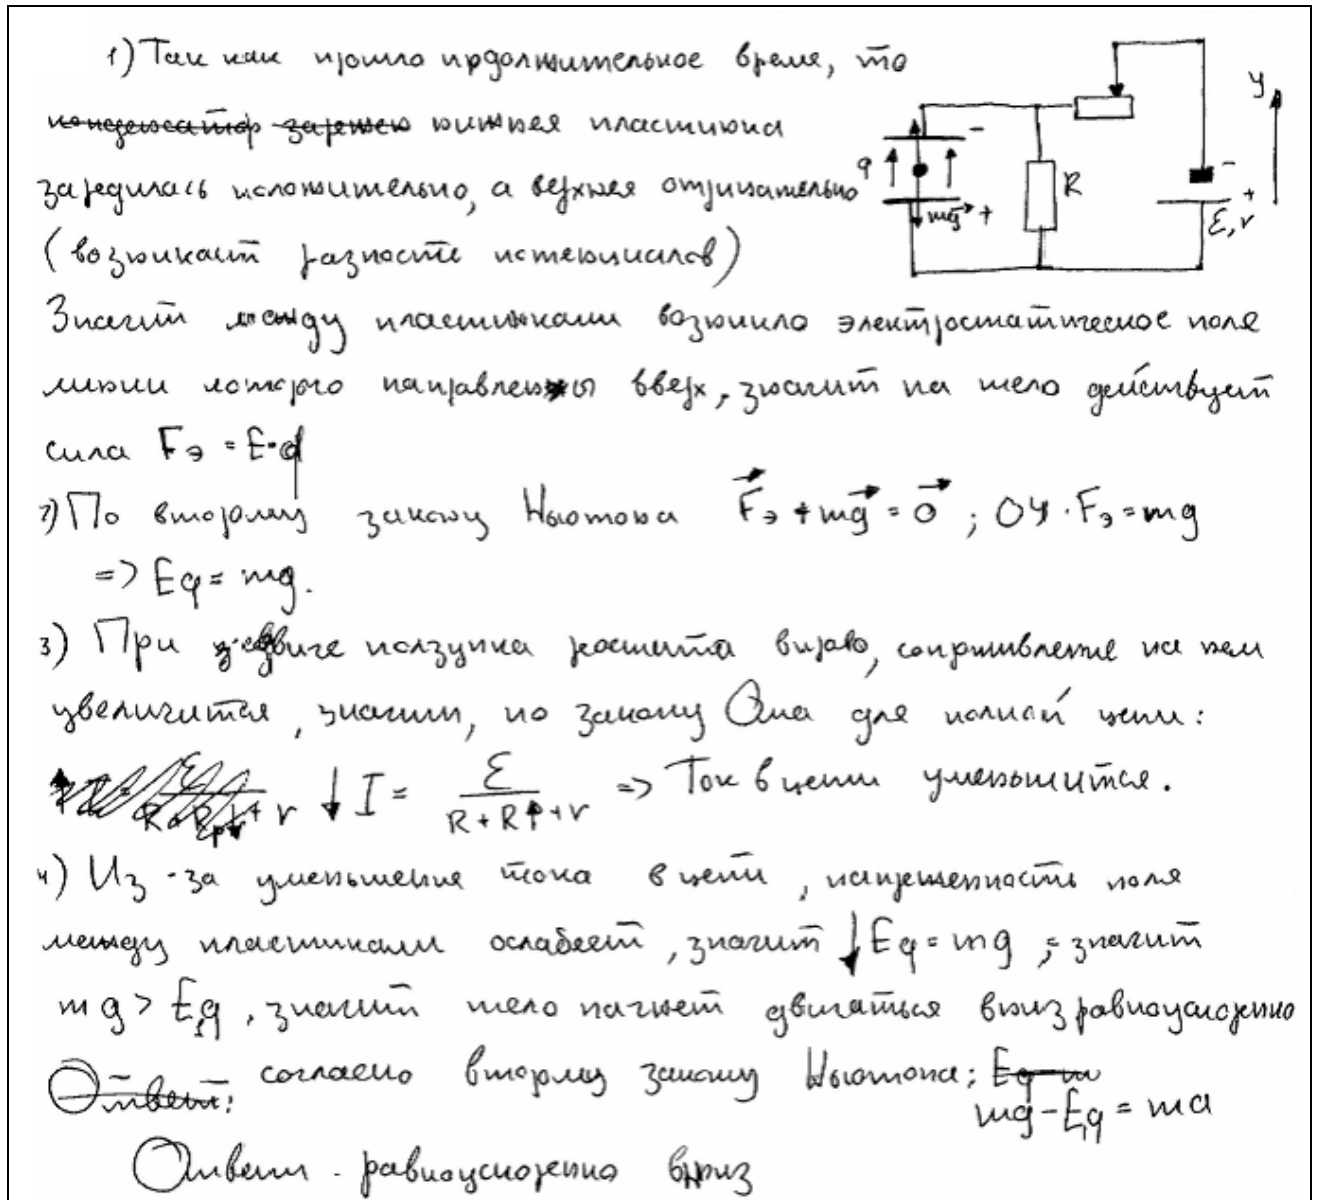 1) Так как прошло прдолжительное время, то
нижняя пластинка
зарядилась положительно, а верхняя отрицательно
(возникает разность потенциалов)
Значит между пластинками возникло электростатическое поле
линии которого направлены вверх, значит на тело действует
сила Fэ = E·q
2) По второму закону Ньютона F⃗э + mg⃗ = 0⃗ ; OY. Fэ = mg
=> Eq = mg.
3) При сдвиге ползунка реостата вправо, сопротивление на нем
увеличится, значит, по закону Ома для полной цепи:
↓ I = ℰ / (R + R↑ + r) => Ток в цепи уменьшится.
4) Из-за уменьшения тока в цепи, напряженность поля
между пластинками ослабеет, значит ↓ Eq = mg ; значит
mg > E₁q, значит тело начнет двигаться вниз равноускоренно
согласно второму закону Ньютона:
mg - E₁q = ma
Ответ. равноускоренно вниз
-
q
mg⃗ +
R
-
+
ℰ, r
y